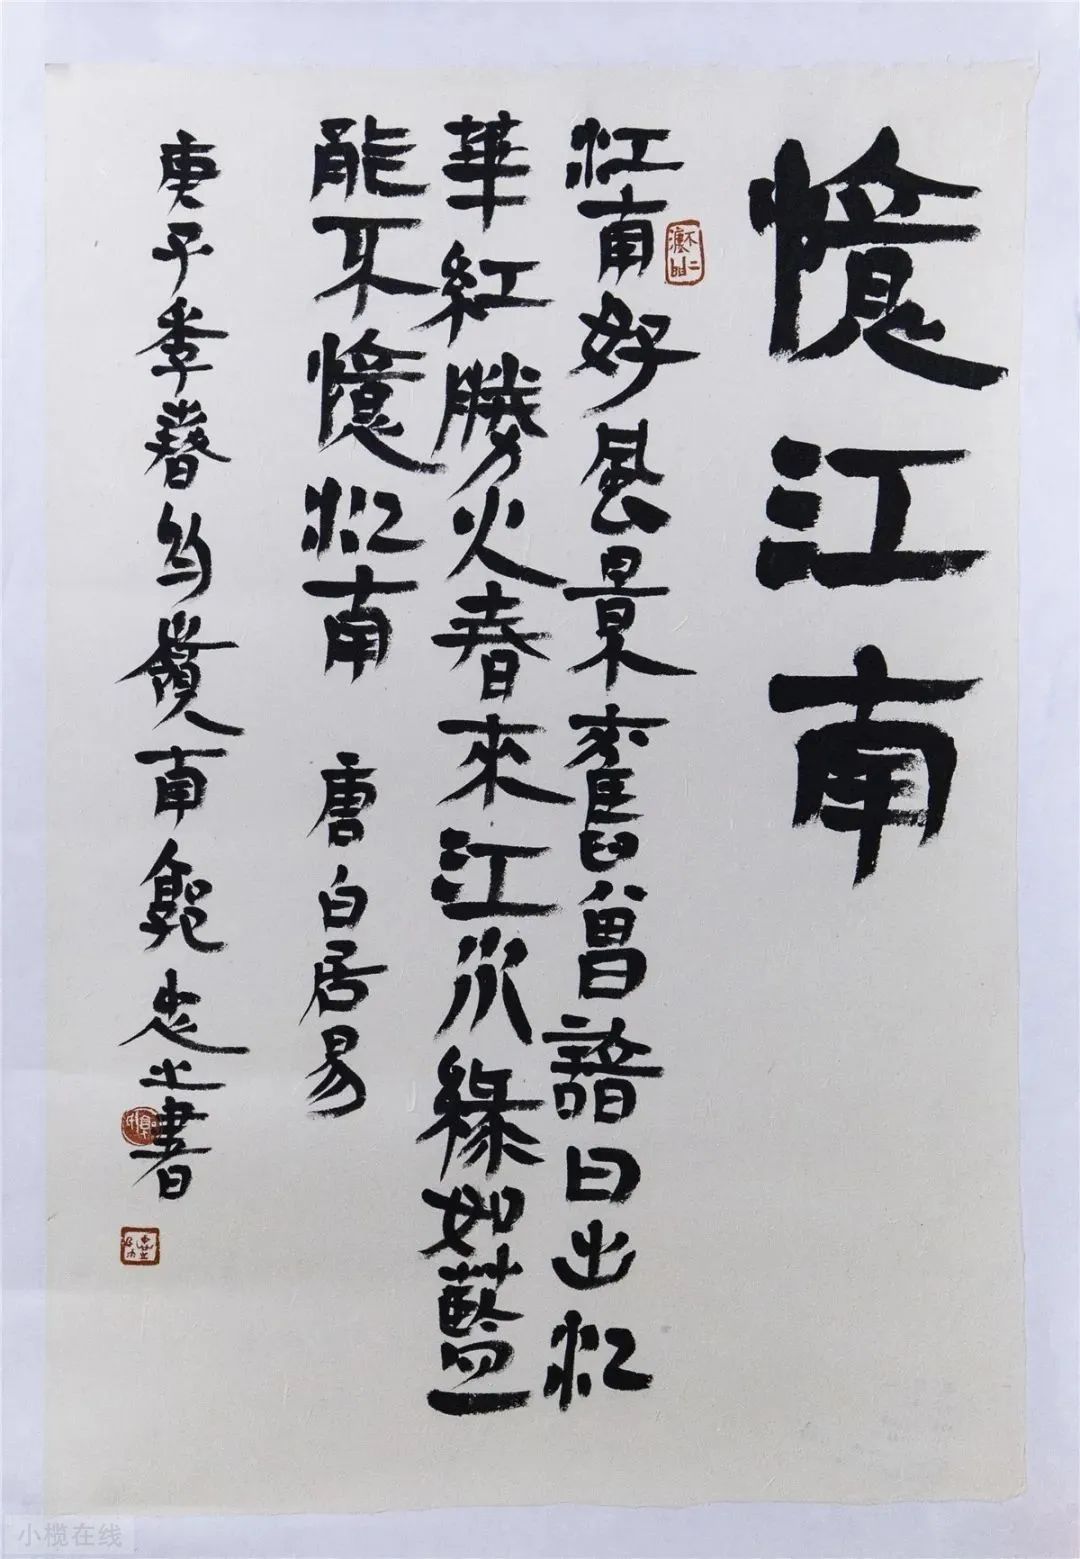 憶江南
江南好風景舊曾諳日出江
華紅勝火春來江水綠如藍
能不憶江南 唐白居易
庚子季春嶺南忠之書
小榄在线